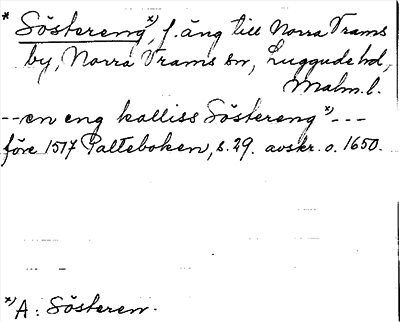 * Söstereng*), f. äng till Norra Trams
by, Norra Vrams sn, Luggude hd,
Malm. l.
--en eng kalliss Söstereng*)---
före 1517 Palteboken, s. 29. avskr. o. 1650.
*) A: Sösteren.